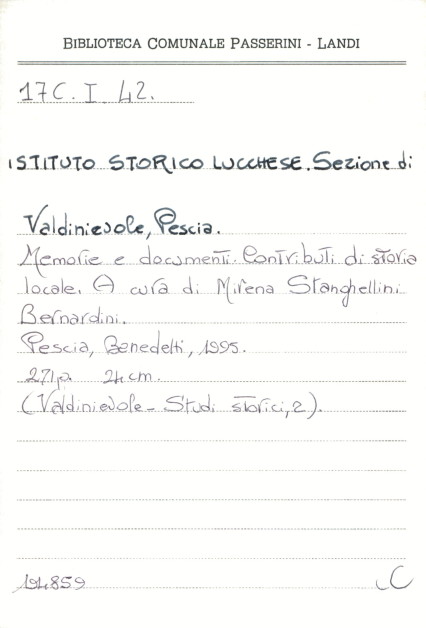 BIBLIOTECA COMUNALE PASSERINI - LANDI
17C. I. 42.
ISTITUTO STORICO LUCCHESE. Sezione di
Valdinievole, Pescia.
Memorie e documenti. Contributi di storia
locale. A cura di Mirena Stanghellini
Bernardini.
Pescia, Benedetti, 1995.
271p. 24 cm.
(Valdinievole - Studi storici, 2).
C